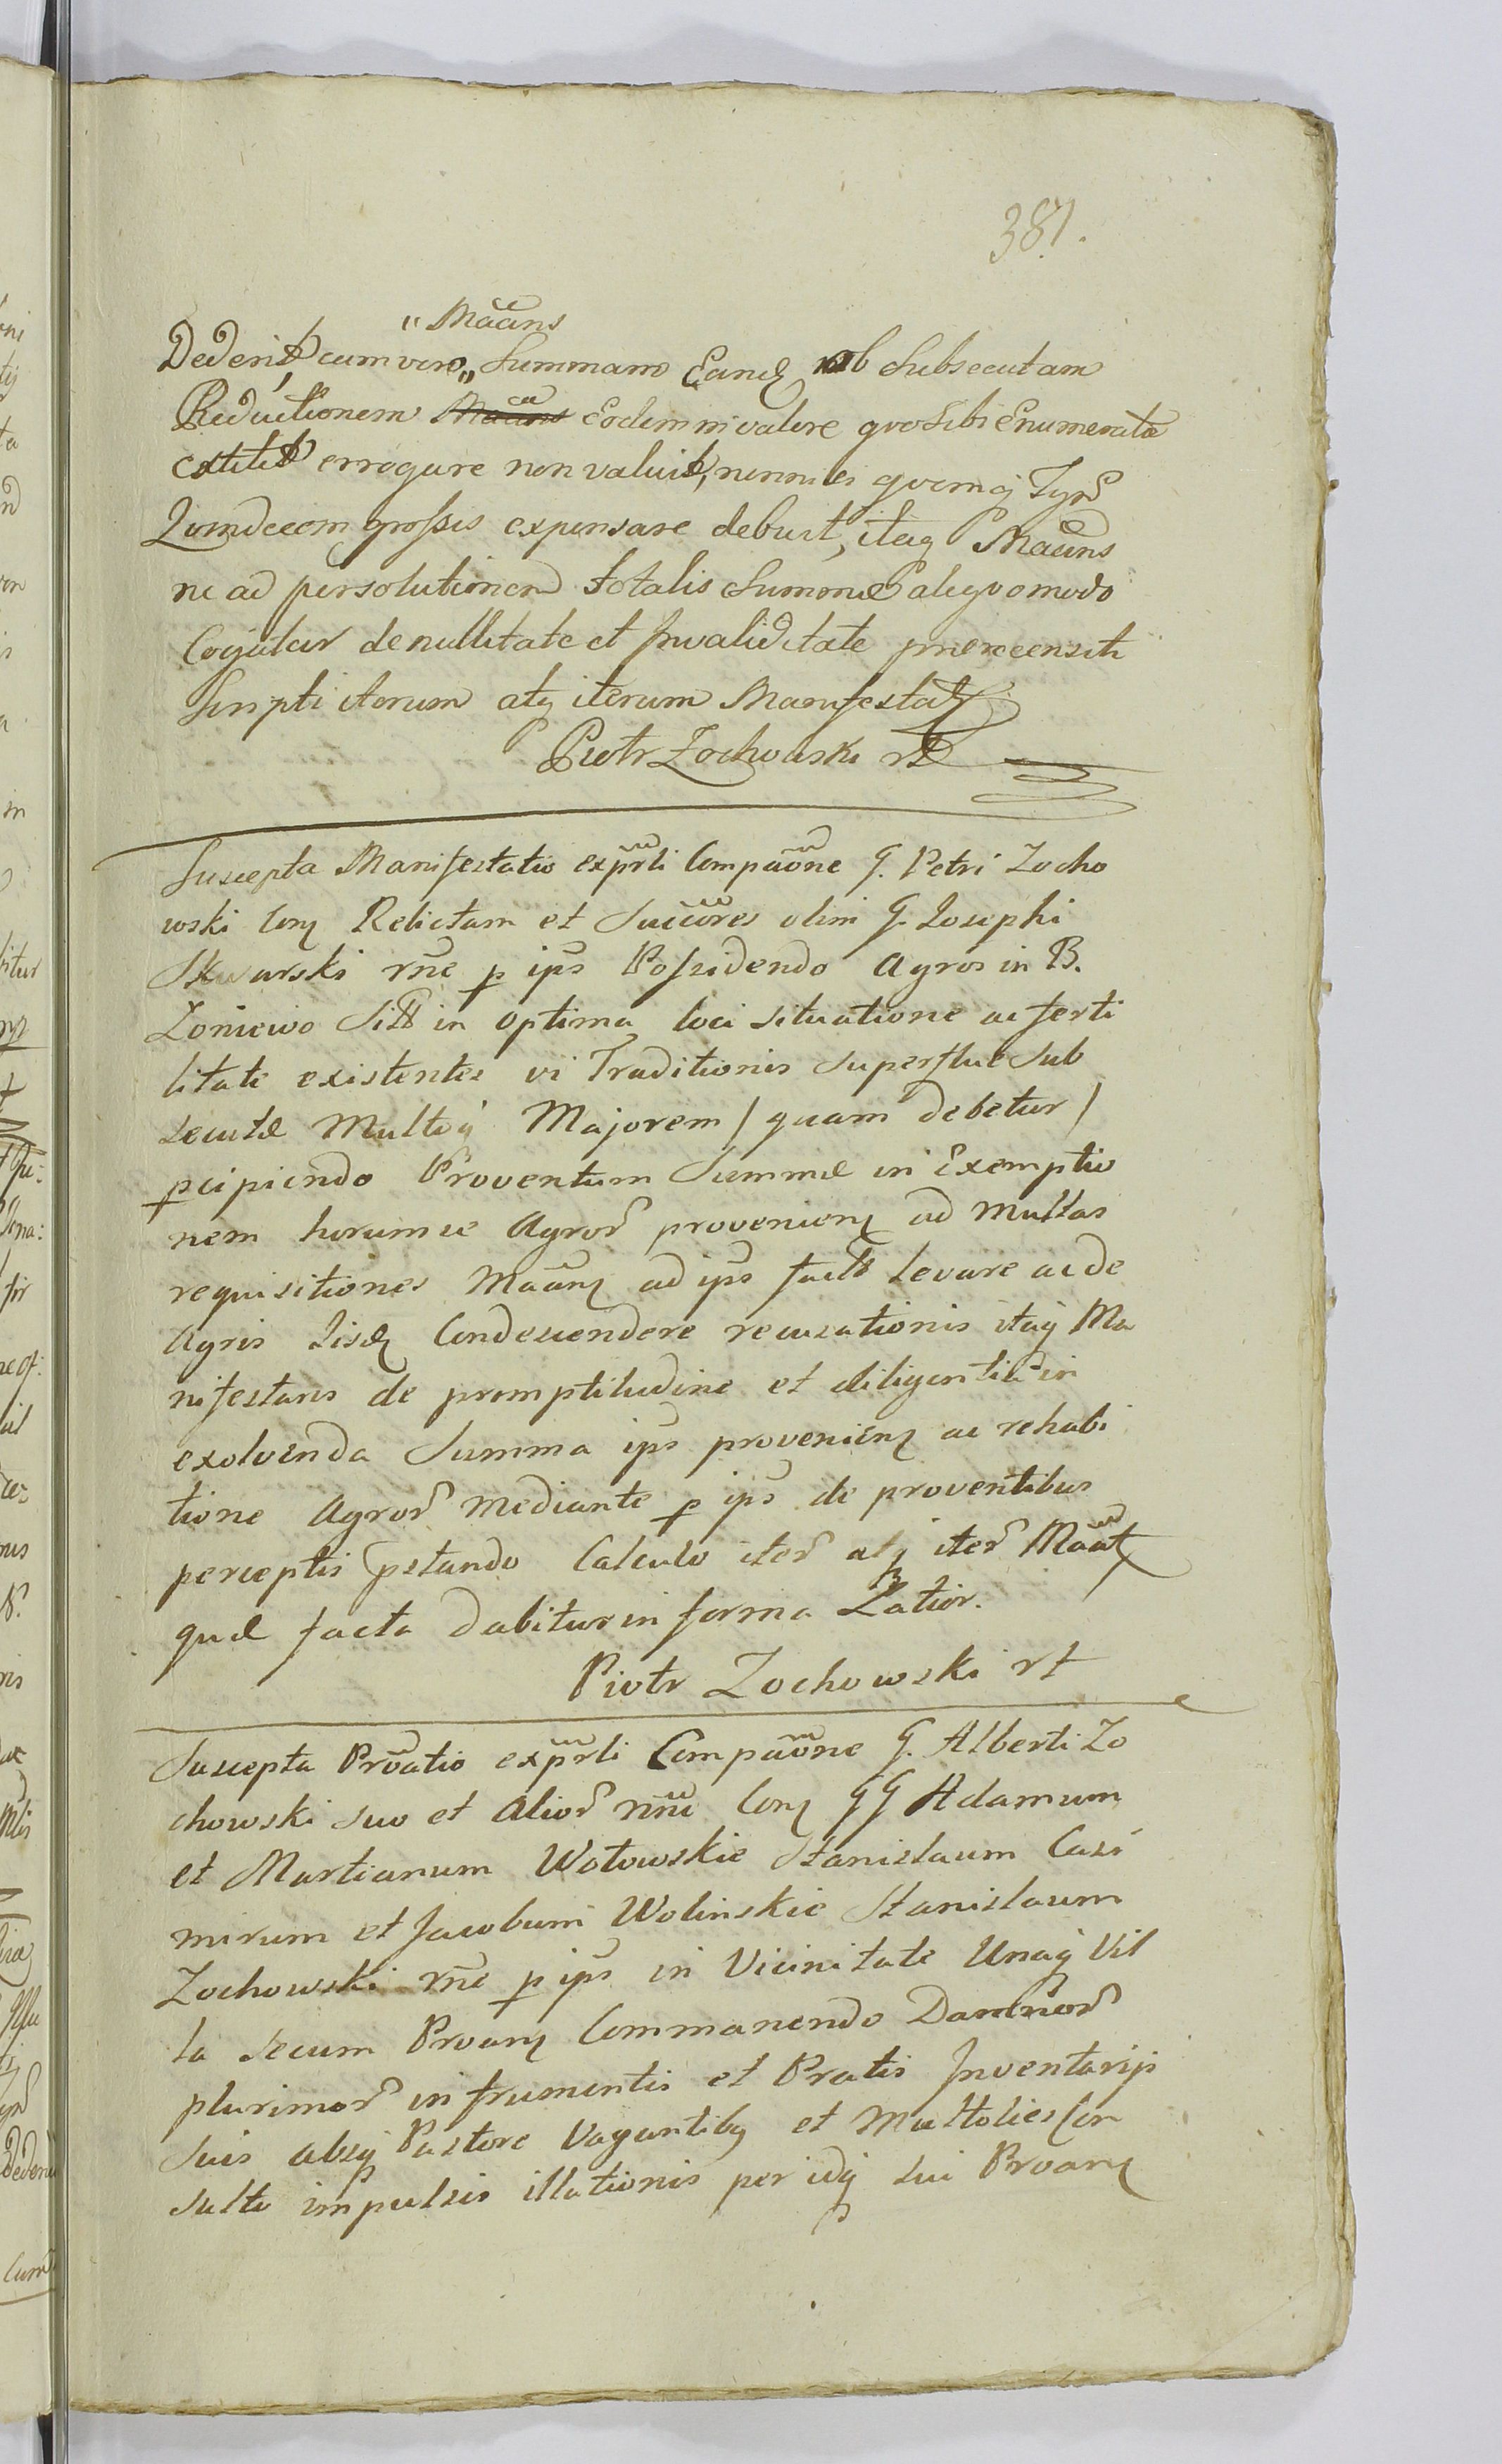 387.
"Maãns
Dederit, cum vero" Summam Eandẽ ob Subsecutam
Reductionem Maãns Eodem in valore quo Sibi Enumerata
extitit errogare non valuit, nonnisi quemq Tynf
Quindecem grossis expensare debuit, itaq Maãns
ne ad persolutionem totalis Summæ aliquomodo
Cogatur de nullitate et Invaliditate præreensiti
Scripti iterum atq iterum Manifestat
Piotr Zochowski rt
Suscepta Manifestatio exprli Compãone G. Petri Zocho
wski Con Relictam et Succõres olim G. Josephi
Skwarski rne p ips Possidendo Agros in B.
Zoniewo Sitt in optima loci situatione ac ferti
litate existentes vi Traditionis Superflue Sub
secutæ Multoq Majorem / quam debetur /
pcipiendo Proventum Summæ in Exemptio
nem horumce Agror provenien ad Multas
requisitiones Maãn ad ips fact levare ac de
Agris Iisd Condescendere recusationis itaq Ma
nifestans de promptitudine et diligentia in
exolvenda Summa ips provenien ac rehabi
tione Agror mediante p ips de proventibus
perceptis pstando Calculo iter atq iter Maãt
quæ facta dabitur in forma Latior.
Piotr Zochowski rt
Suscepta Prõatio exprli Compãone G. Alberti Zo
chowski suo et Alior nñe Con GG Adamum
et Martianum Wotowskie Stanislaum Casi
mirum et Jacobum Wolinskie Stanislaum
Zochowski rne p ips in Vicinitate Unaq Vil
la secum Proan Commanendo Damnor
plurimor in frumentis et Pratis Inventarijs
Suis absq Pastore Vagantibq et Multoties Con
sulto impulsis illationis per idq sui Proan